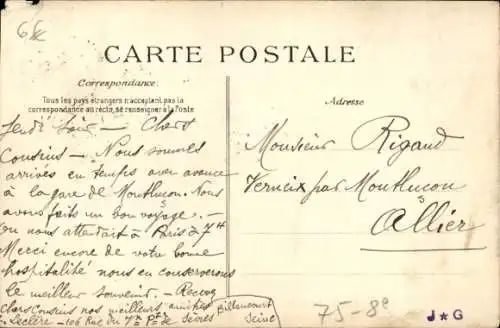 6€
CARTE POSTALE
Correspondance:
Tous les pays étrangers n'acceptent pas la
correspondance au recto, se renseigner à la Poste
Jeudi soir — Chers
Cousins — Nous sommes
arrivés en temps avec avance
à la gare de Montluçon. Nous
avons faits un bon voyage. —
On nous attendait à Paris à 7H
Merci encore de votre bonne
hospitalité nous en conserverons
le meilleur souvenir. — Recevez
Chers Cousins nos meilleurs amitiés
Leclère — 106 Rue du Vx Pt de Sèvres
Billancourt
Seine
Adresse
Monsieur Rigaud
Verneix par Montluçon
Allier
75-8e
J★G